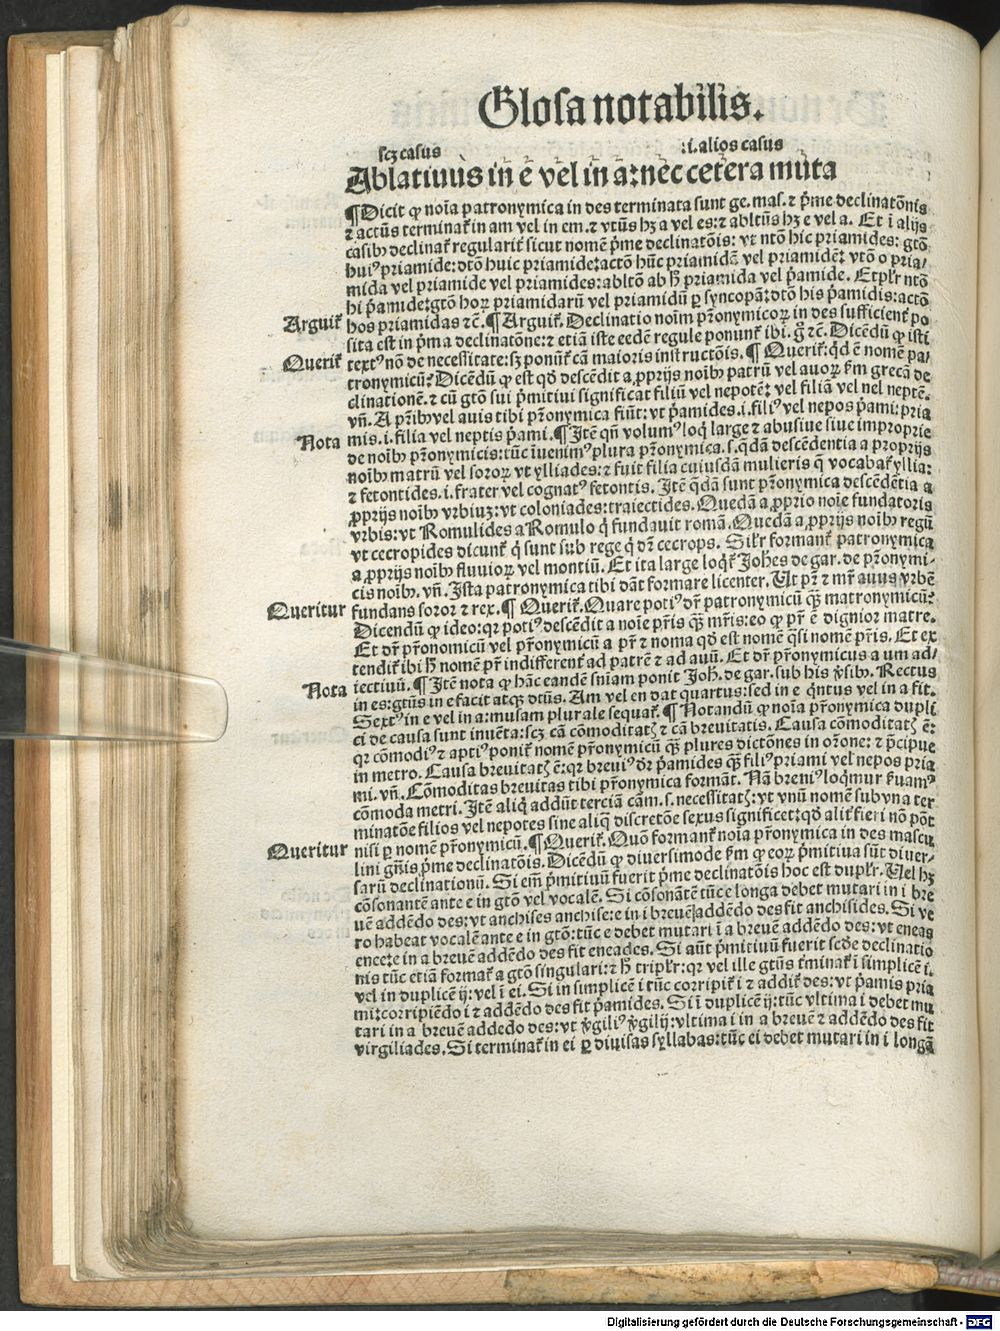 Glosa notabilis.
scꝫ casus .i. alios casus
Ablatiuus in e vel in a: nec cetera muta
¶ Dicit ꝙ noīa patronymica in des terminata sunt ge. mas. ⁊ p̄me declinatōnis
⁊ actūs terminat᷑ in am vel in em. ⁊ vtūs hꝫ a vel es: ⁊ abltūs hꝫ e vel a. Et ī alijs
casibꝰ declinat᷑ regularit᷑ sicut nomē p̄me declinatōis: vt ntō hic priamides: gtō
huiꝰ priamide: dtō huic priamide: actō hūc priamidē vel priamidē: vtō o pria/
mida vel priamide vel priamides: abltō ab h̄ priamida vel p̄amide. Et plr̄ ntō
hi p̄amide: gtō hoꝝ priamidarū vel priamidū ꝑ syncopā: dtō his p̄amidis: actō
Arguit᷑ hos priamidas ⁊c̄. ¶ Arguit᷑. Declinatio noīm pr̄onymicoꝝ in des sufficient᷑ po
sita est in p̄ma declinatōne: ⁊ etiā iste eedē regule ponunt᷑ ibi. g̊ ⁊c̄. Dicēdū ꝙ isti
Querit᷑ textꝰ nō de necessitate: sꝫ ponūt᷑ cā maioris instructōis. ¶ Querit᷑: qd̄ ē nomē pa/
tronymicū? Dicēdū ꝙ est qd̄ descēdit a ꝓprijs noībꝰ patrū vel auoꝝ ẜm grecā de
clinationē. ⁊ cū gtō sui p̄mitiui significat filiū vel nepotē: vel filiā vel neptē.
vn̄. A pr̄ibꝰ vel auis tibi pr̄onymica fiūt: vt p̄amides .i. filiꝰ vel nepos p̄ami: pria
Nota mis .i. filia vel neptis p̄ami. ¶ Itē qn̄ volumꝰ loq̄ large ⁊ abusiue siue improprie
de noībꝰ pr̄onymicis: tūc īuenimꝰ plura pr̄onymica .s. q̄dā descēdentia a proprijs
noībꝰ matrū vel soroꝝ vt ylliades: ⁊ fuit filia cuiusdā mulieris q̄ vocabat᷑ yllia:
⁊ fetontides .i. frater vel cognatꝰ fetontis. Itē q̄dā sunt pr̄onymica descēdētia a
ꝓprijs noībꝰ vrbiuꝫ: vt coloniades: traiectides. Quedā a ꝓprio noīe fundatoris
vrbis: vt Romulides a Romulo q̄ fundauit romā. Quedā a ꝓprijs noībꝰ regū
vt cecropides dicunt᷑ q̄ sunt sub rege q̄ dr̄ cecrops. Silr̄ formant᷑ patronymica
a ꝓprijs noībꝰ fluuioꝝ vel montiū. Et ita large loqt᷑ Johēs de gar. de pr̄onymi/
cis noībꝰ. vn̄. Ista patronymica tibi dāt formare licenter. Ut pr̄ ⁊ mr̄ auus vrbē
Queritur fundans soror ⁊ rex. ¶ Querit᷑. Quare potiꝰ dr̄ patronymicū qꝫ̄ matronymicū?
Dicendū ꝙ ideo: qꝛ potiꝰ descēdit a noīe pr̄is qꝫ̄ mr̄is: eo ꝙ pr̄ ē dignior matre.
Et dr̄ pr̄onomicū vel pr̄onymicū a pr̄ ⁊ noma qd̄ est nomē q̄si nomē pr̄is. Et ex
tendit᷑ ibi h̄ nomē pr̄ indifferent᷑ ad patrē ⁊ ad auū. Et dr̄ pr̄onymicus a um ad/
Nota iectiuū. ¶ Itē nota ꝙ hāc eandē sn̄iam ponit Joh. de gar. sub his v̄sibꝰ. Rectus
in es: gtūs in e facit atqꝫ dtūs. Am vel en dat quartus: sed in e q̄ntus vel in a fit.
Sextꝰ in e vel in a: musam plurale sequat᷑. ¶ Notandū ꝙ noīa pr̄onymica dupli
ci de causa sunt inuēta: scꝫ cā cōmoditatꝭ ⁊ cā breuitatis. Causa cōmoditatꝭ ē:
qꝛ cōmodiꝰ ⁊ aptiꝰ ponit᷑ nomē pr̄onymicū qꝫ̄ plures dictōnes in or̄one: ⁊ p̄cipue
in metro. Causa breuitatꝭ ē: qꝛ breuiꝰ dr̄ p̄amides qꝫ̄ filiꝰ priami vel nepos pria
mi. vn̄. Cōmoditas breuitas tibi pr̄onymica formāt. Nā breuiꝰ loqmur ẜuamꝰ
cōmoda metri. Itē aliq̄ addūt terciā cām .s. necessitatꝭ: vt vnū nomē sub vna ter
minatōe filios vel nepotes sine aliq̄ discretōe sexus significet: qd̄ alit᷑ fieri nō pōt
Queritur nisi ꝑ nomē pr̄onymicū. ¶ Querit᷑. Quō formant᷑ noīa pr̄onymica in des mascu
lini gn̄is p̄me declinatōis. Dicēdū ꝙ diuersimode ẜm ꝙ eoꝝ p̄mitiua sūt diuer/
sarū declinationū. Si em̄ p̄mitiuū fuerit p̄me declinatōis hoc est duplr̄. Uel hꝫ
cōsonantē ante e in gtō vel vocalē. Si cōsonātē tūc e longa debet mutari in i bre
uē addēdo des: vt anchises anchise: e in i breuē addēdo des fit anchisides. Si ve
ro habeat vocalē ante e in gtō: tūc e debet mutari ī a breuē addēdo des: vt eneas
enee: e in a breuē addēdo des fit eneades. Si aūt p̄mitiuū fuerit scd̄e declinatio
nis tūc etiā format᷑ a gtō singulari: ⁊ h̄ triplr̄: qꝛ vel ille gtūs t̄minat᷑ ī simplicē i.
vel in duplicē ij: vel ī ei. Si in simplicē i tūc corripit᷑ i ⁊ addit᷑ des: vt p̄amis pria
mi: corripiēdo i ⁊ addēdo des fit p̄amides. Si ī duplicē ij: tūc vltima i debet mu
tari in a breuē addedo des: vt v̄giliꝰ v̄gilij: vltima i in a breuē ⁊ addēdo des fit
virgiliades. Si terminat᷑ in ei ꝑ diuisas syllabas: tūc ei debet mutari in i longā
Digitalisierung gefördert durch die Deutsche Forschungsgemeinschaft - DFG